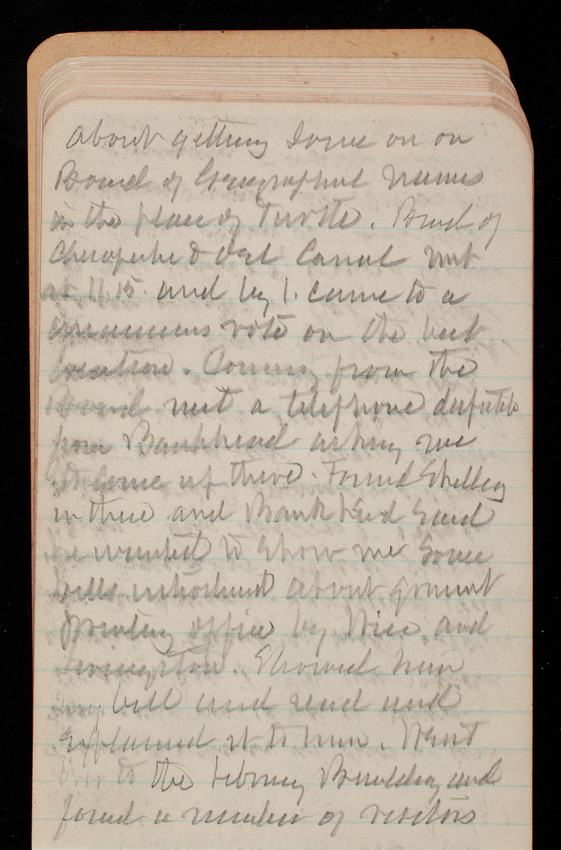 about getting some on on
Board of Geographical names
in the place of Turtle. Board of
Chesapeake & Del Canal met
at 11.15 and by 1. came to a
unanimous vote on the best
location. Coming from the
Board met a telephone dispatch
from Bankhead asking me
to come up there. Found Shelley
in there and Bankhead said
he wanted to show me some
bills introduced about govmnt
Printing office by Rice and
Livingston. Showed him
my bill and read and
explained it to him. Went
to the Library Building and
found a number of visitors